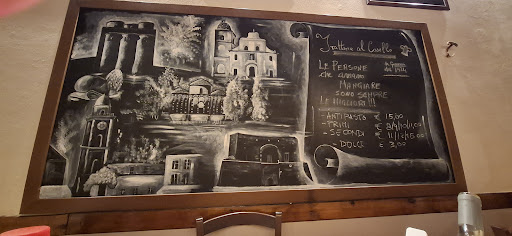 Trattoria al Casello
LE PERSONE
che amano
MANGIARE
SONO SEMPRE
LE MIGLIORI !!!
- ANTIPASTO € 15,00
- PRIMI €
- SECONDI €
- DOLCE € 3,00